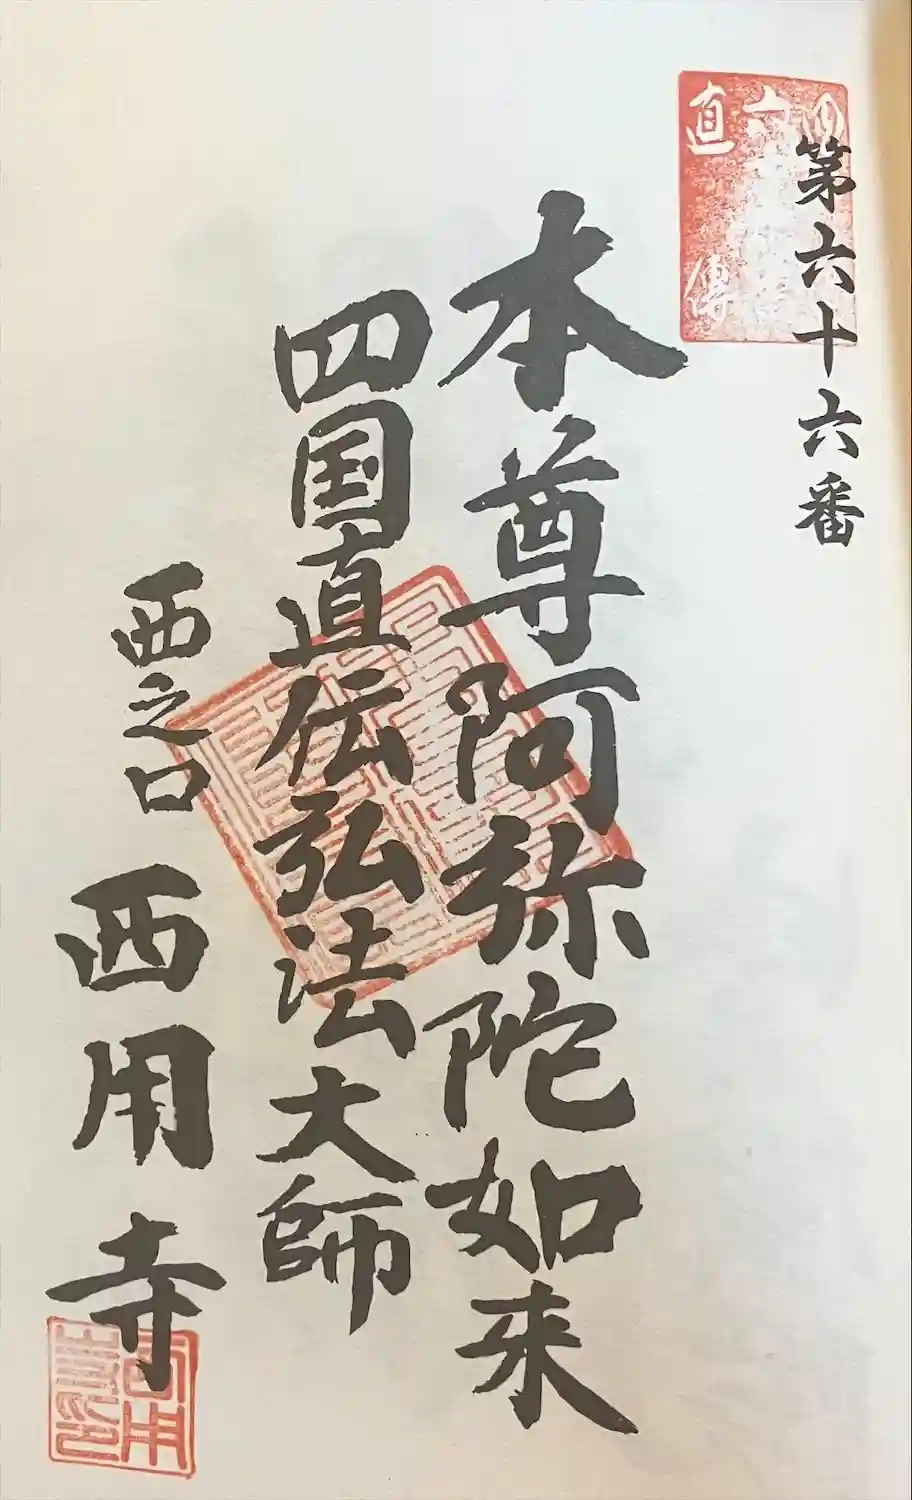 第六十六番
本尊阿弥陀如来
四国直伝弘法大師
西之口
西用寺
直傳